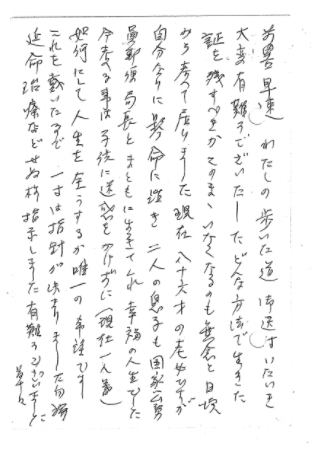 前畧 早速 わたしの歩いた道 御送りいたゞき
大変有難うございました どんな方法で生きた
証を残すべきか このまゝいなくなるのも無念と日頃
から考へて居りました 現在 八十六才の老ひですが
自分なりに懸命に過き 二人の息子も国家公務
員 郵便局長とまともに生きてくれ 幸福の人生でした
今考へる事は 子供に迷惑をかけずに(現在一人暮)
如何にして人生を全うするか唯一の希望です
これを戴いたので 一寸は指針が決まりました 勿論
延命治療などせぬ様 指示しました 有難うございました